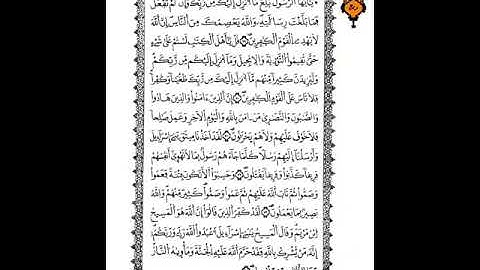 يَٰٓأَيُّهَا ٱلرَّسُولُ بَلِّغْ مَآ أُنزِلَ إِلَيْكَ مِن رَّبِّكَ وَإِن لَّمْ تَفْعَلْ
فَمَا بَلَّغْتَ رِسَٰلَتِهِۦ وَٱللَّهُ يَعْصِمُكَ مِنَ ٱلنَّاسِ إِنَّ ٱللَّهَ
لَا يَهْدِى ٱلْقَوْمَ ٱلْكَٰفِرِينَ قُلْ يَٰٓأَهْلَ ٱلْكِتَٰبِ لَسْتُمْ عَلَىٰ شَىْءٍ
حَتَّىٰ تُقِيمُوا۟ ٱلتَّوْرَىٰةَ وَٱلْإِنجِيلَ وَمَآ أُنزِلَ إِلَيْكُم مِّن رَّبِّكُمْ
وَلَيَزِيدَنَّ كَثِيرًا مِّنْهُم مَّآ أُنزِلَ إِلَيْكَ مِن رَّبِّكَ طُغْيَٰنًا وَكُفْرًا
فَلَا تَأْسَ عَلَى ٱلْقَوْمِ ٱلْكَٰفِرِينَ إِنَّ ٱلَّذِينَ ءَامَنُوا۟ وَٱلَّذِينَ هَادُوا۟
وَٱلصَّٰبُونَ وَٱلنَّصَٰرَىٰ مَنْ ءَامَنَ بِٱللَّهِ وَٱلْيَوْمِ ٱلْءَاخِرِ وَعَمِلَ صَٰلِحًا
فَلَا خَوْفٌ عَلَيْهِمْ وَلَا هُمْ يَحْزَنُونَ لَقَدْ أَخَذْنَا مِيثَٰقَ بَنِىٓ إِسْرَٰٓءِيلَ
وَأَرْسَلْنَآ إِلَيْهِمْ رُسُلًا كُلَّمَا جَآءَهُمْ رَسُولٌۢ بِمَا لَا تَهْوَىٰٓ أَنفُسُهُمْ
فَرِيقًا كَذَّبُوا۟ وَفَرِيقًا يَقْتُلُونَ وَحَسِبُوٓا۟ أَلَّا تَكُونَ فِتْنَةٌ فَعَمُوا۟
وَصَمُّوا۟ ثُمَّ تَابَ ٱللَّهُ عَلَيْهِمْ ثُمَّ عَمُوا۟ وَصَمُّوا۟ كَثِيرٌ مِّنْهُمْ وَٱللَّهُ
بَصِيرٌۢ بِمَا يَعْمَلُونَ لَقَدْ كَفَرَ ٱلَّذِينَ قَالُوٓا۟ إِنَّ ٱللَّهَ هُوَ ٱلْمَسِيحُ
ٱبْنُ مَرْيَمَ وَقَالَ ٱلْمَسِيحُ يَٰبَنِىٓ إِسْرَٰٓءِيلَ ٱعْبُدُوا۟ ٱللَّهَ رَبِّى وَرَبَّكُمْ
إِنَّهُۥ مَن يُشْرِكْ بِٱللَّهِ فَقَدْ حَرَّمَ ٱللَّهُ عَلَيْهِ ٱلْجَنَّةَ وَمَأْوَىٰهُ ٱلنَّارُ